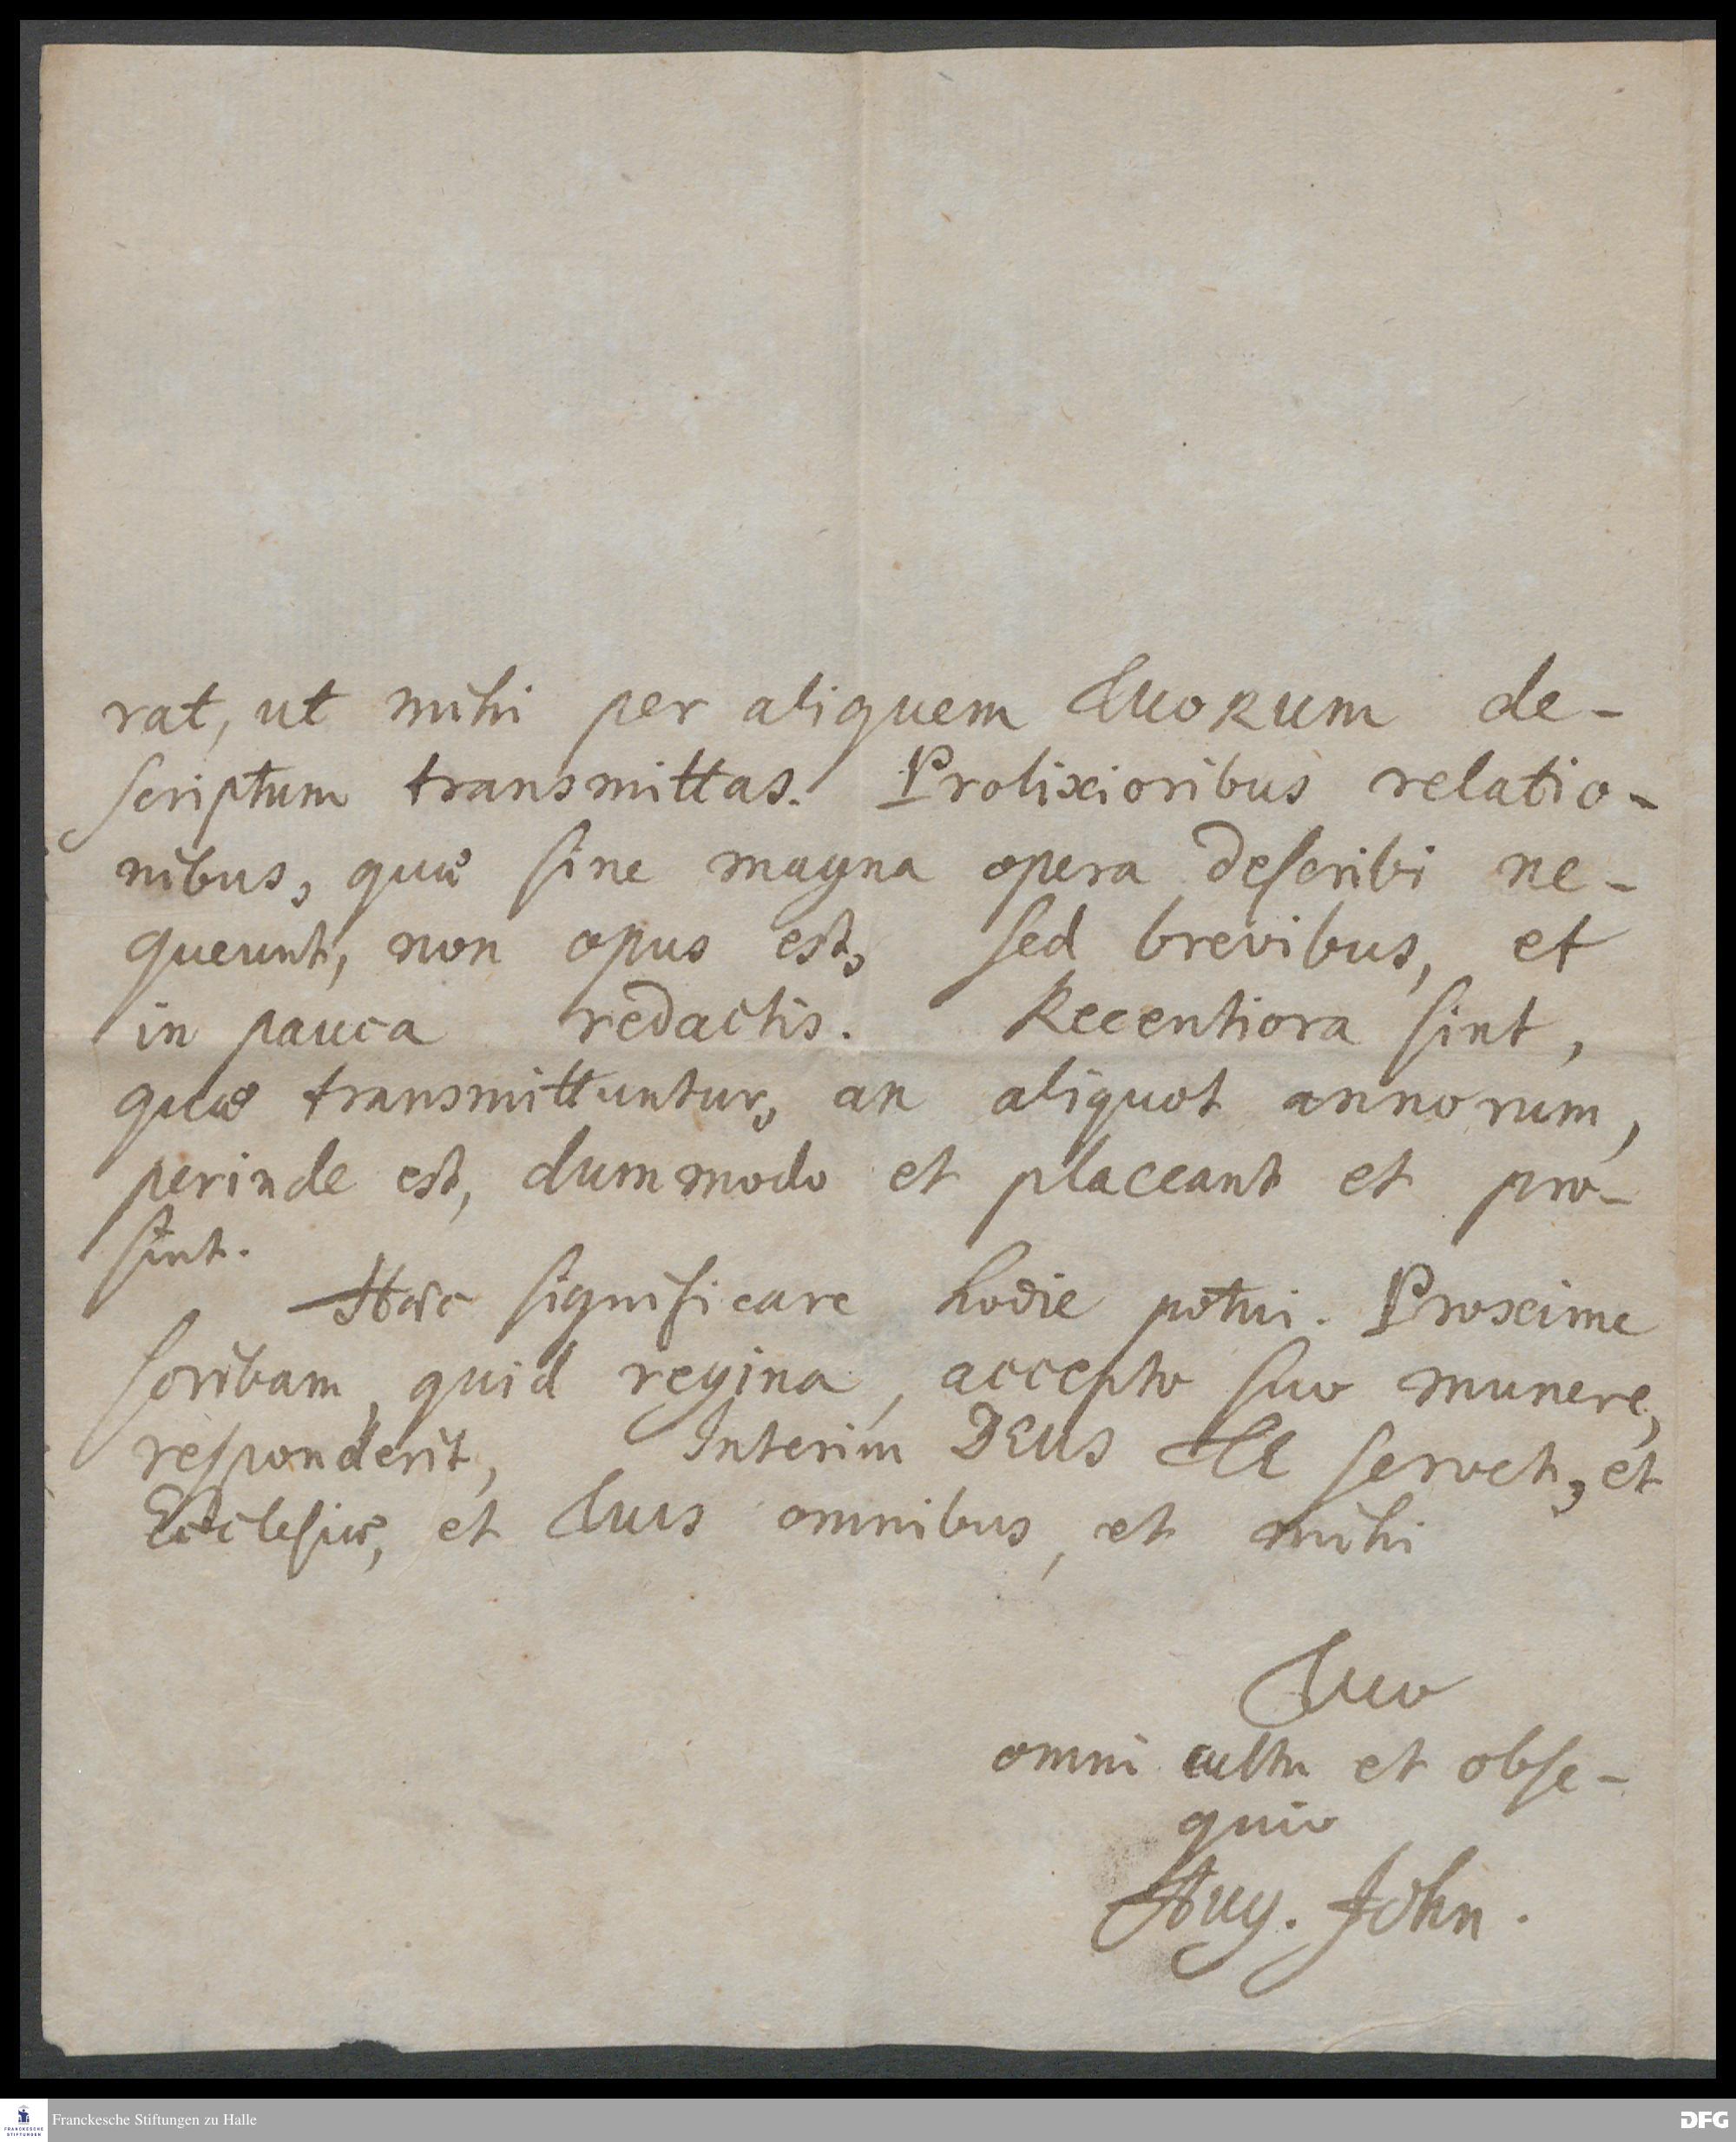 rat, ut mihi per aliquem TuoRum de-
scriptum transmittas. Prolixioribus relatio-
nibus, quæ sine magna opera describi ne-
queunt, non opus est, sed brevibus, et
in pauca redactis. Recentiora sint,
quæ transmittuntur, an aliquot annorum,
perinde est, dummodo et placeant et pro-
sint.
Hæc significare hodie potui. Proxime
scribam, quid regina, accepto suo munere,
responderit, Interim DEUS TE servet, et
Ecclesiæ, et Tuis omnibus, et mihi
Tuo
omni cultu et obse-
quio
Aug. John.
Franckesche Stiftungen zu Halle
FRANCKESCHE
STIFTUNGEN
DFG